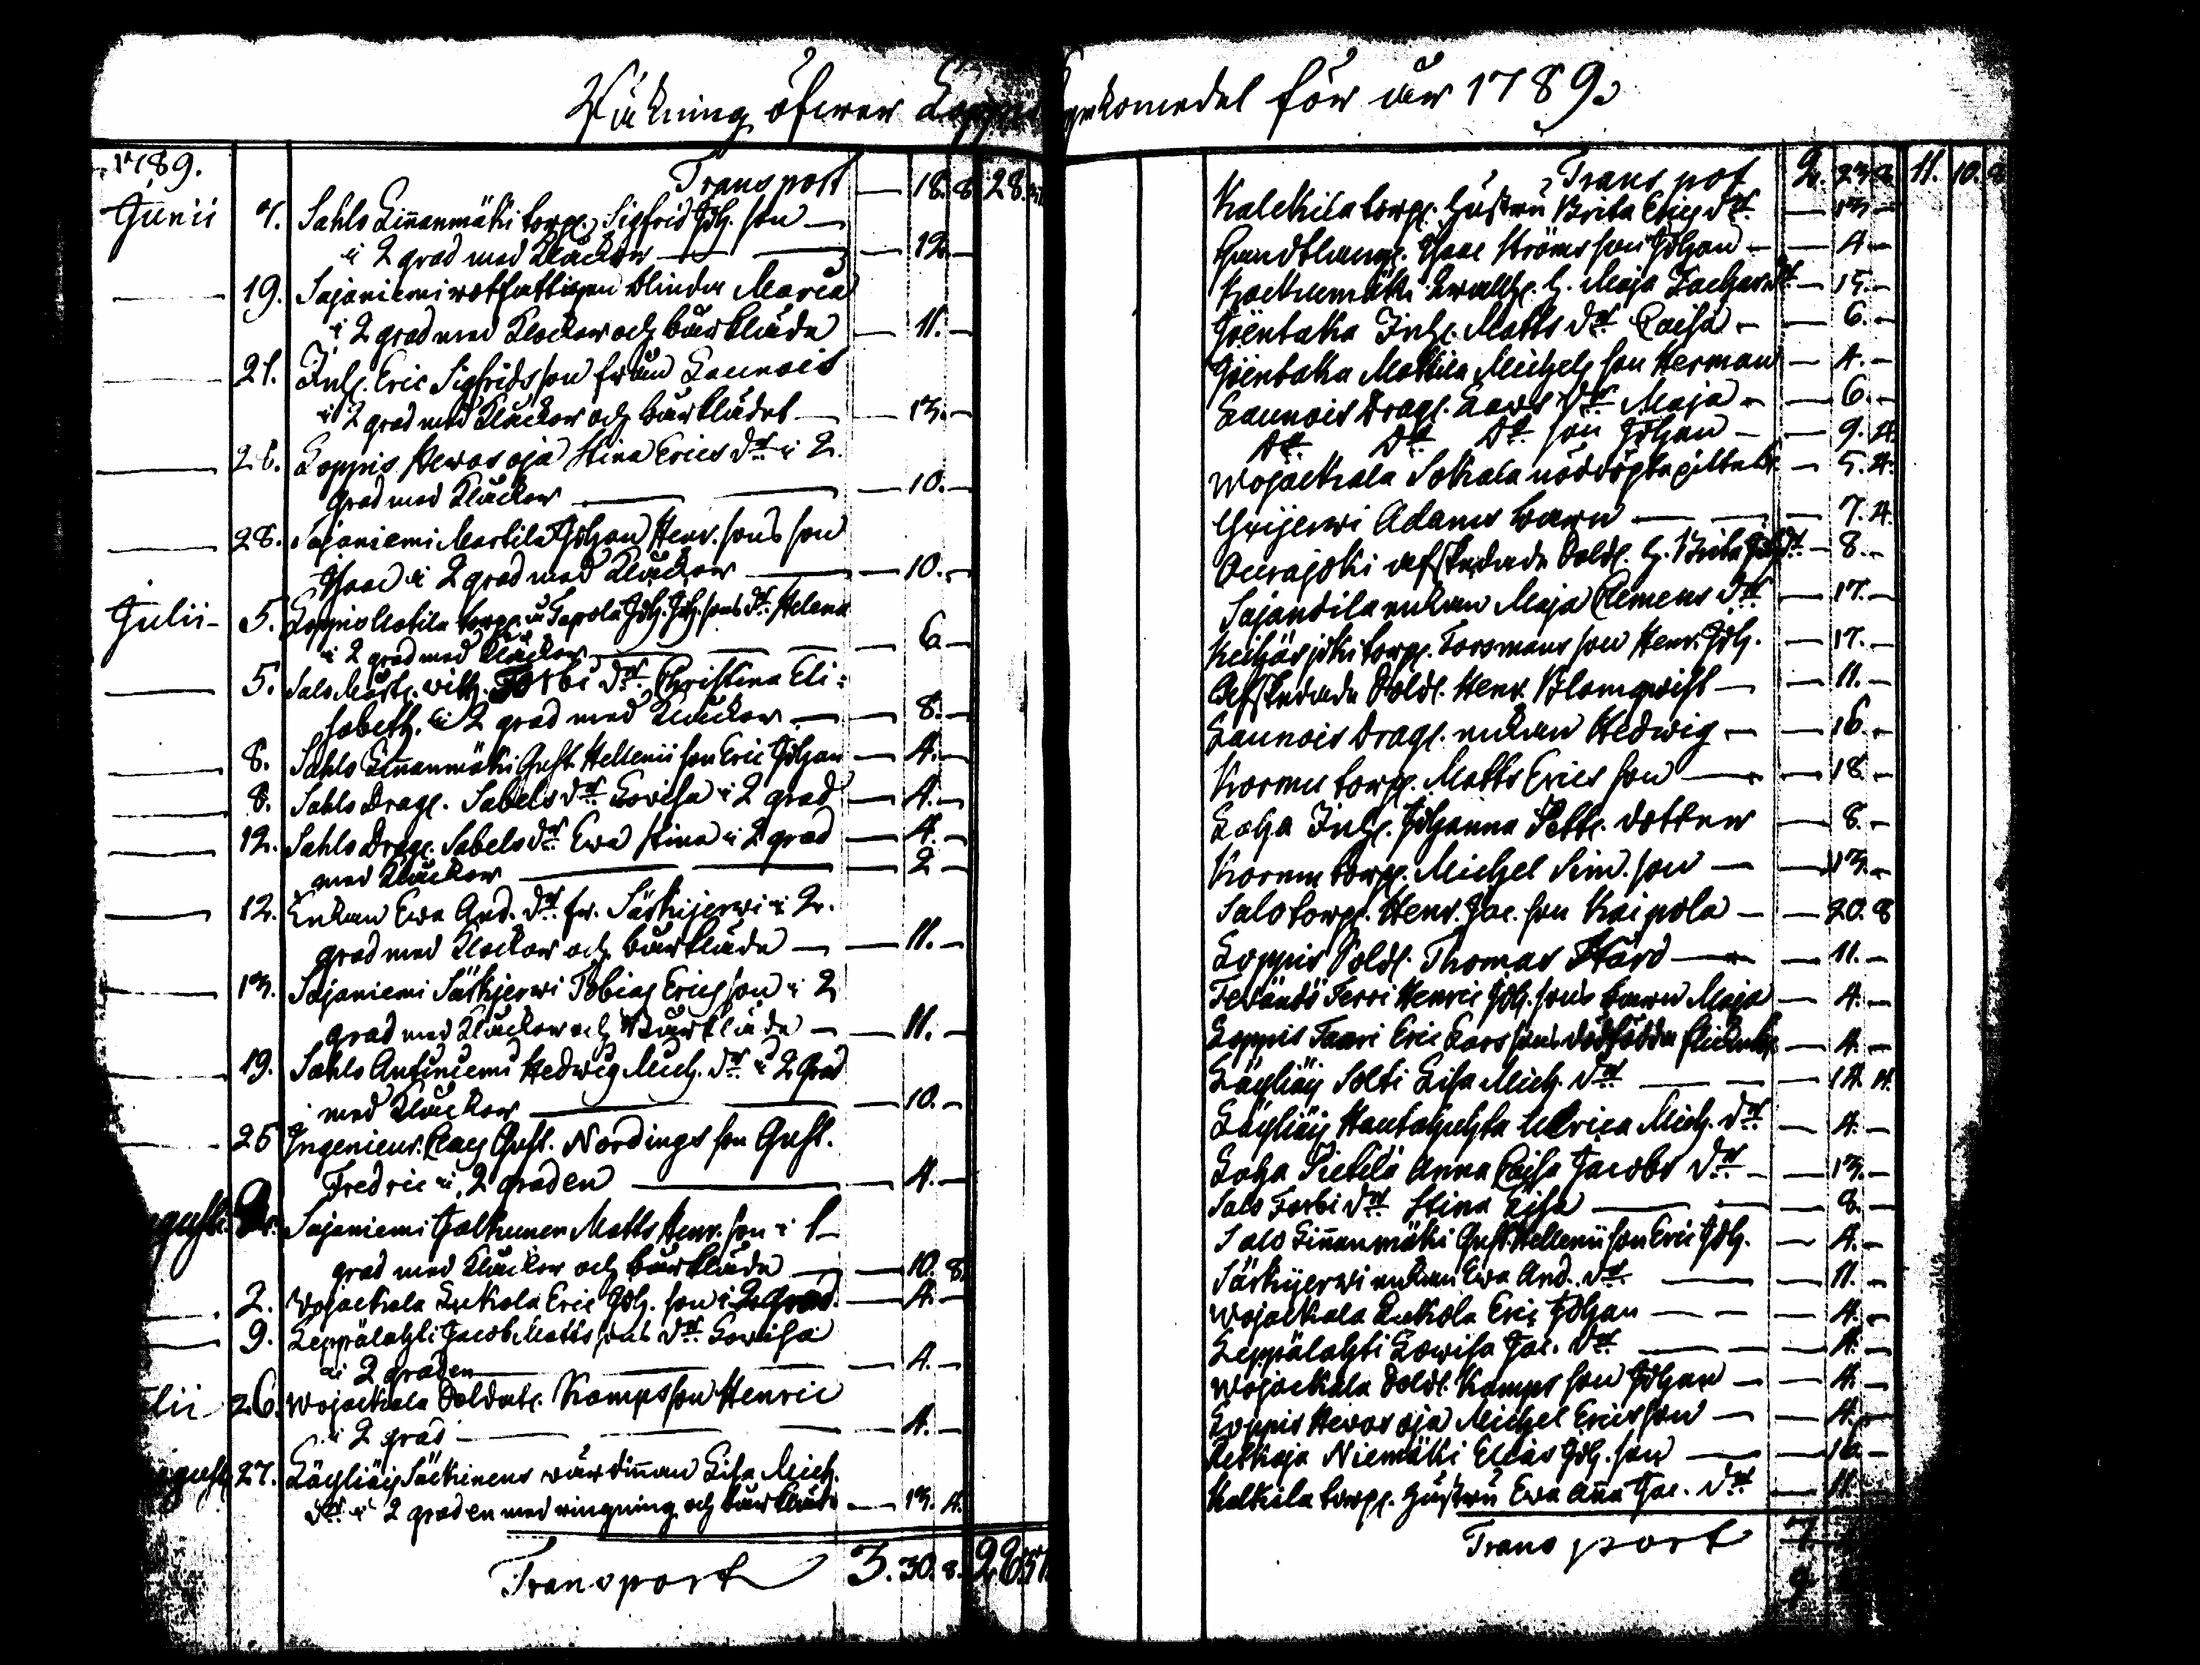 Räkning öfwer Loppis Kyrkomedel för år 1789.
1789. Transport — 18. 8 28.
Junii 7. Sahls Linnanmäki torp. Sigfrid Joh. son —
i 2 grad med Klockor — 12 —
19. Sajaniemi rotfattigen blinda Maria
i 2 grad med Klockor och bårkläde — 11. —
21. Inh. Eric Sigfridsson från Launois
i 2 grad med Klockor och bårklädet — 13. —
26. Loppis Hewosoja Stina Erics dr. i 2.
grad med Klockor — 10. —
28. Sajaniemi Martila Johan Henr. sons son
Isaac i 2 grad med Klockor — 10. —
Julii — 5. Loppis torp. Tapola Joh. Joh. sons dr. Helena
i 2 grad med Klockor — 6 —
5. Salo With. Torbi dr. Christina Eli:
sabeth. i 2 grad med Klockor — 8. —
8. Sahls Linnanmäki Gust. Hellenii son Eric Johan — 4. —
8. Sahls Drag. Sabels dr. Lovisa i 2 grad — 4. —
12. Sahls Drag. Sabels dr. Ewa Stina i 2 grad — 4. —
med Klockor — 2
12. Enkan Ewa And. dr. fr. Särkijerwi i 2.
grad med Klockor och bårkläde — 11. —
13. Sajaniemi Särkijerwi Tobias Ericsson i 2
grad med Klockor och Bårkläde — 11. —
19. Sahls Antiniemi Hedwig Mich. dr. i 2 Grad
med Klockor — 10. —
25 Ingenieur. Claes Gust. Nordings son Gust.
Fredric i 2 graden — 4. —
gusti 2. Sajaniemi Jalkunen Matts Henr. son i 1
grad med Klockor och bårkläde — 10. 8.
2. Wojackala Eric Joh. son i 2 grad. — 4. —
9. Leppälahti Jacob Mattssons dr. Lovisa
i 2 graden — 4. —
lii 26. Wojackala Soldat. Kamps son Henric
i 2 grad — 4. —
gusti 27. Läyliäis Säckinens wärdinnan Lisa Mich.
dr. i 2 graden med ringning och bårkläde — 13. 4.
Transport 3. 30. 8.
Transpot 2. 23. 8 11. 10. 8
Kalckila torp. hustru Brita Erics dr. — 13 —
Handtlang. Isaac Ströms son Johan — 4. —
H. Maja Zachar. dr. — 15. —
Jöentaka Inh. Matts dr. Caisa — 6. —
Jöentaka Mattila Michels son Herman — 4. —
Launois Drag. Lars dr. Maja — 6. —
Dto. Dto. Dto. son Johan — 9. 4.
Wojackala Sokala nöddöpta — 5. 4.
Adams barn — 7. 4.
Ourajoki afskedade Sold. h. Brita Joh. dr. — 8. —
Sajandila enkan Maja Clemens dr. — 17. —
torp. Forsmans son Henr. Joh. — 17. —
Afskedade Sold. Henr. Blomqwist — 11. —
Launois Drag. enkan Hedwig — 16. —
Kormu torp. Matts Ericsson — 18. —
Loha Inh. Johanna Pett. dotter — 8. —
Kormu torp. Michel Sim. son — 13. —
Salo torp. Henr. Jac. son Kaipola — 20. 8
Loppis Sold. Thomas Hård — 11. —
Tewändö Ferri Henric Joh. sons barn Maja — 4. —
Loppis Taari Eric Larssons dödfödda — 4. —
Läyliäis Solti Lisa Mich. dr. — 14. 4.
Läyliäis Hautahuhta Ulrica Mich. dr. — 4. —
Loha Pietilä Anna Caisa Jacobs dr. — 13. —
Salo Torbi dr. Stina Lisa — 8. —
Salo Linnanmäki Gust. Hellenii son Eric Joh. — 4. —
Särkijerwi enkan Ewa And. dr. — 11. —
Wojackala Eric Johan — 4. —
Leppälahti Lowisa Jac. dr. — 4. —
Wojackala Sold. Kamps son Johan — 4. —
Loppis Hewosoja Michel Ericsson — 4. —
Niemäki Elias Joh. son —
Kalkila torp. hustru Ewa Anna Jac. dr. — 11. —
Transport 7